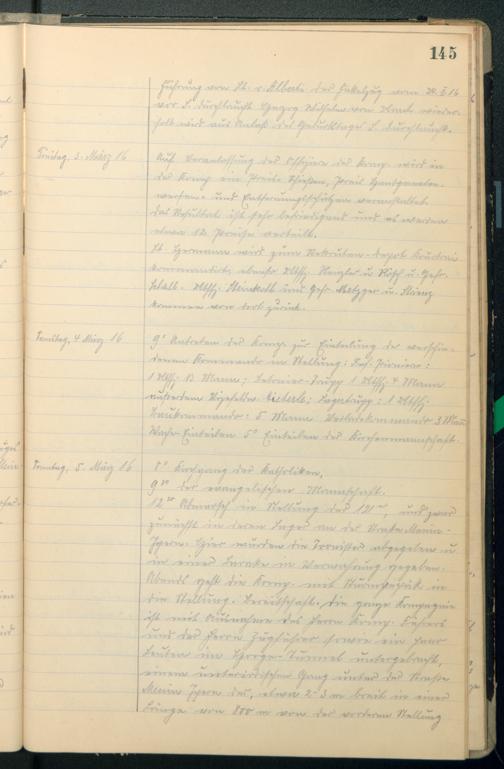 145
Führung von Lt. v. Alberti der Fackelzug vom 28.2.16
vor S. Durchlaucht Herzog Wilhelm von Urach wieder-
holt wird aus Anlaß des Geburtstags S. Durchlaucht.
Freitag, 3. März 16 Auf Veranlassung der Offiziere der Komp. wird in
der Komp. ein Preis-Schießen, Preis-Handgranaten-
werfen- und Entfernungsschätzen veranstaltet.
Das Resultat ist sehr befriedigend und es werden
etwa 12 Preise verteilt.
Lt. Hermann wird zum Rekruten-Depot
kommandiert, ebenso Utffz. u. Gefr.
Utffz. und Gefr. Metzger u.
kommen von dort zurück.
Samstag, 4. März 16 9° Antreten der Komp. zur Einteilung der verschie-
denen Kommandos in Stellung:
1 Utffz. 13 Mann; Trupp 1 Utffz. 4 Mann
außerdem Vizefeldw. 1 Utffz.
Baukommando: 5 Mann 3 Mann
5° Einteilen der Mannschaft.
Sonntag, 5. März 16 8° Kirchgang der Katholiken,
9³⁰ der evangelischen Mannschaft.
12³⁰ Abmarsch in Stellung der 121er, und zwar
zunächst in deren Lager an der Straße Menin-
Ypern. Hier wurden die Tornister abgegeben u.
in einer Baracke in Verwahrung gegeben.
Abends geht die Komp. mit Sturmgepäck in
die Stellung. Bereitschaft. Die ganze Kompagnie
ist mit Ausnahme des Herrn Komp. Führers
und der Herrn Zugführer sowie ein paar
Leuten im Hooge-Tunnel untergebracht,
einem unterirdischen Gang unter der Straße
Menin Ypern der, etwa 2-3 m breit in einer
Länge von 800 m von der vorderen Stellung